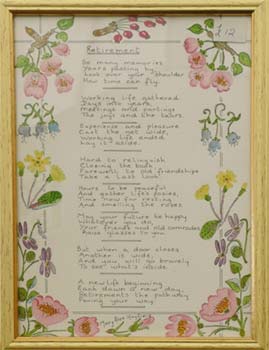 £12
Retirement
So many memories
Years passing by
Look over your shoulder
How time can fly.
Working life gathered
Days into years,
Meetings and partings
The joys and the tears.
Experience and pleasure
Cast the net wide,
Working life ended
Lay it aside.
Hard to relinquish
Closing the book
Farewell to old friendships
Take a last look
Hours to be peaceful
And gather life's posies,
Time now for resting
And smelling the roses.
May your future be happy
Whatever you do,
Your friends and old comrades
Raise glasses to you
But when a door closes
Another is wide,
And you will go bravely
To see what's inside.
A new life beginning
Each dawn a new day,
Retirements the pathway
Paving your way.
Mary Rose